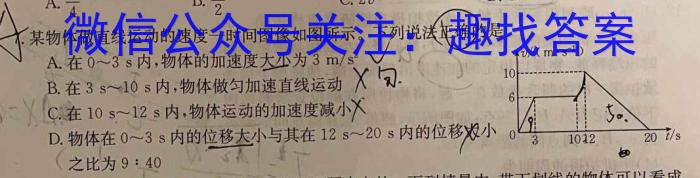 A. 4 B. 2 C. 20
微信公众号关注：趣找答案
7. 某物体做直线运动的速度—时间图像如图所示，下列说法正确的是
A. 在 0～3 s 内,物体的加速度大小为 3 m/s²
B. 在 3 s～10 s 内,物体做匀加速直线运动 ✗ 匀.
C. 在 10 s～12 s 内,物体运动的加速度减小 ✗
D. 物体在 0～3 s 内的位移大小与其在 12 s～20 s 内的位移大小
之比为 9∶40
10
6
0 3 10 12 20 t/s
9 50.